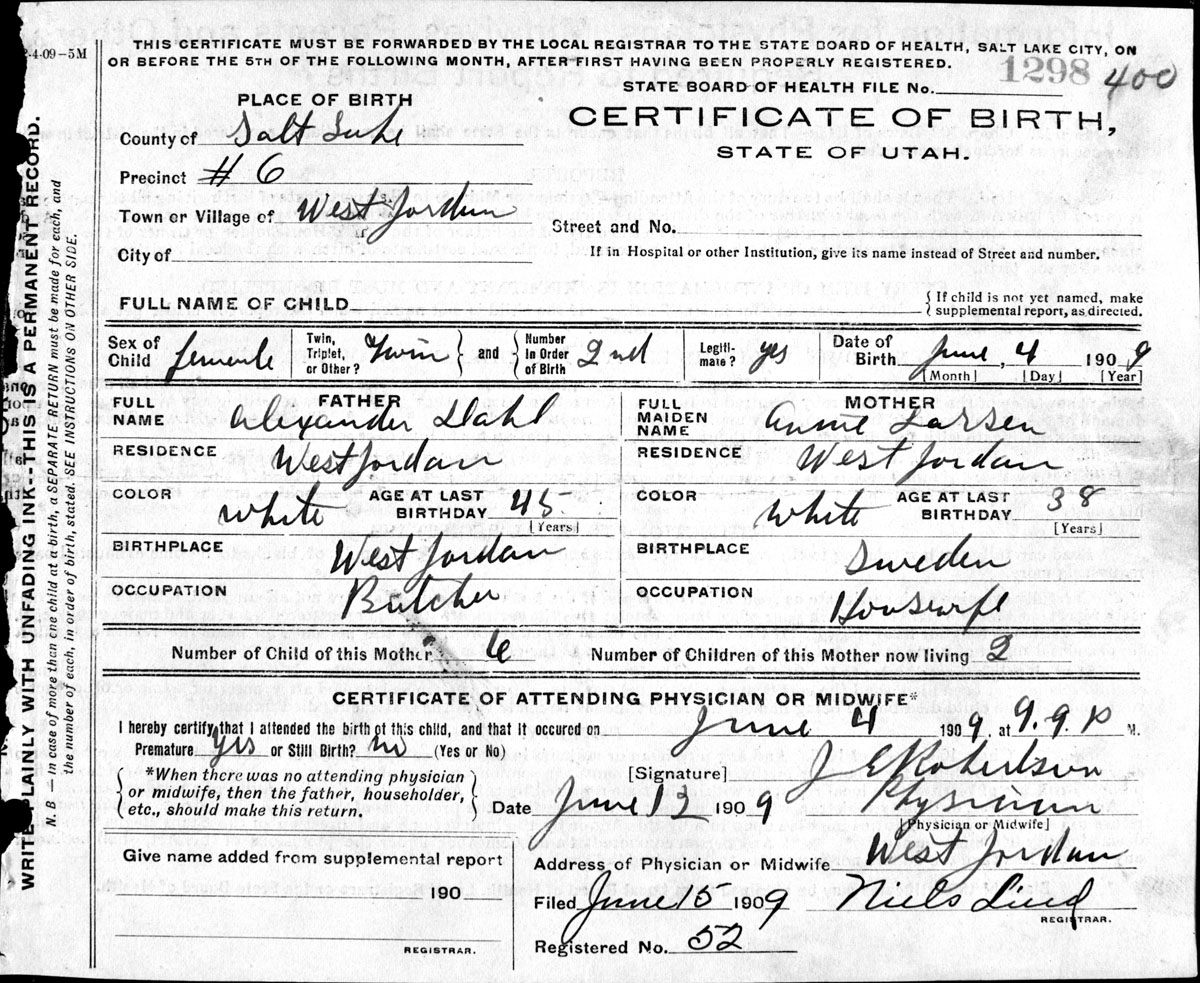 2-4-09-5M
THIS CERTIFICATE MUST BE FORWARDED BY THE LOCAL REGISTRAR TO THE STATE BOARD OF HEALTH, SALT LAKE CITY, ON
OR BEFORE THE 5TH OF THE FOLLOWING MONTH, AFTER FIRST HAVING BEEN PROPERLY REGISTERED.
1298 400
STATE BOARD OF HEALTH FILE No.
PLACE OF BIRTH
CERTIFICATE OF BIRTH,
STATE OF UTAH.
County of Salt Lake
Precinct # 6
Town or Village of West Jordan
Street and No.
City of
If in Hospital or other Institution, give its name instead of Street and number.
FULL NAME OF CHILD
{ If child is not yet named, make
supplemental report, as directed.
Sex of Child female
Twin, Triplet, or Other? Twin } and { Number in Order of Birth 2nd
Legiti-mate? yes
Date of Birth June, 4 1909
[Month] [Day] [Year]
FATHER
FULL NAME Alexander Dahl
RESIDENCE West Jordan
COLOR White AGE AT LAST BIRTHDAY 45
[Years]
BIRTHPLACE West Jordan
OCCUPATION Butcher
MOTHER
FULL MAIDEN NAME Annie Larsen
RESIDENCE West Jordan
COLOR White AGE AT LAST BIRTHDAY 38
[Years]
BIRTHPLACE Sweden
OCCUPATION Housewife
Number of Child of this Mother 6 Number of Children of this Mother now living 2
CERTIFICATE OF ATTENDING PHYSICIAN OR MIDWIFE*
I hereby certify that I attended the birth of this child, and that it occured on June 4 1909, at 9.9. P M.
Premature yes or Still Birth? no (Yes or No)
{ *When there was no attending physician
or midwife, then the father, householder,
etc., should make this return. }
[Signature] J E Robertson
Date June 12 1909 Physician
[Physician or Midwife]
Give name added from supplemental report
190
REGISTRAR.
Address of Physician or Midwife West Jordan
Filed June 15 1909 Niels Lind
REGISTRAR.
Registered No. 52
WRITE PLAINLY WITH UNFADING INK--THIS IS A PERMANENT RECORD.
N. B — In case of more than one child at a birth, a SEPARATE RETURN must be made for each, and
the number of each, in order of birth, stated. SEE INSTRUCTIONS ON OTHER SIDE.